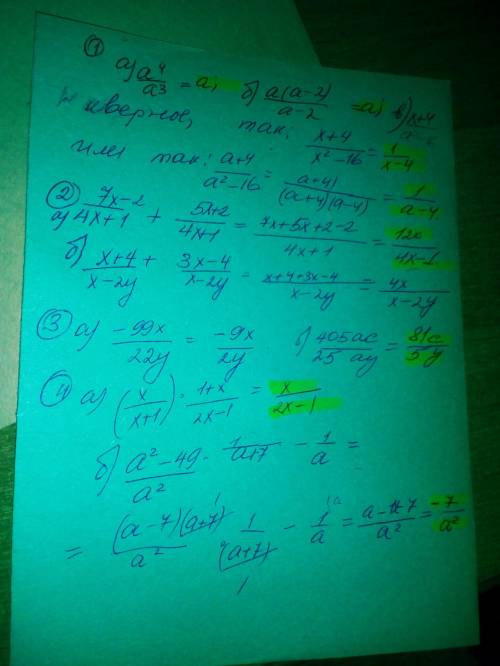 ① а) a⁴/a³ = a; б) a(a-2)/a-2 = a; в) x+4
наверное, так: x+4/x²-16 = 1/x-4
или так: a+4/a²-16 = (a+4)/(a+4)(a-4) = 1/a-4
② а) 7x-2/4x+1 + 5x+2/4x+1 = 7x+5x+2-2/4x+1 = 12x/4x-1
б) x+4/x-2y + 3x-4/x-2y = x+4+3x-4/x-2y = 4x/x-2y
③ а) -99x/22y = -9x/2y б) 405ac/25ay = 81c/5y
④ а) (x/x+1) · 1+x/2x-1 = x/2x-1
б) a²-49/a² · 1/a+7 - 1/a =
= (a-7)(a+7)/a² 1/(a+7) - 1/a = = -7/a²